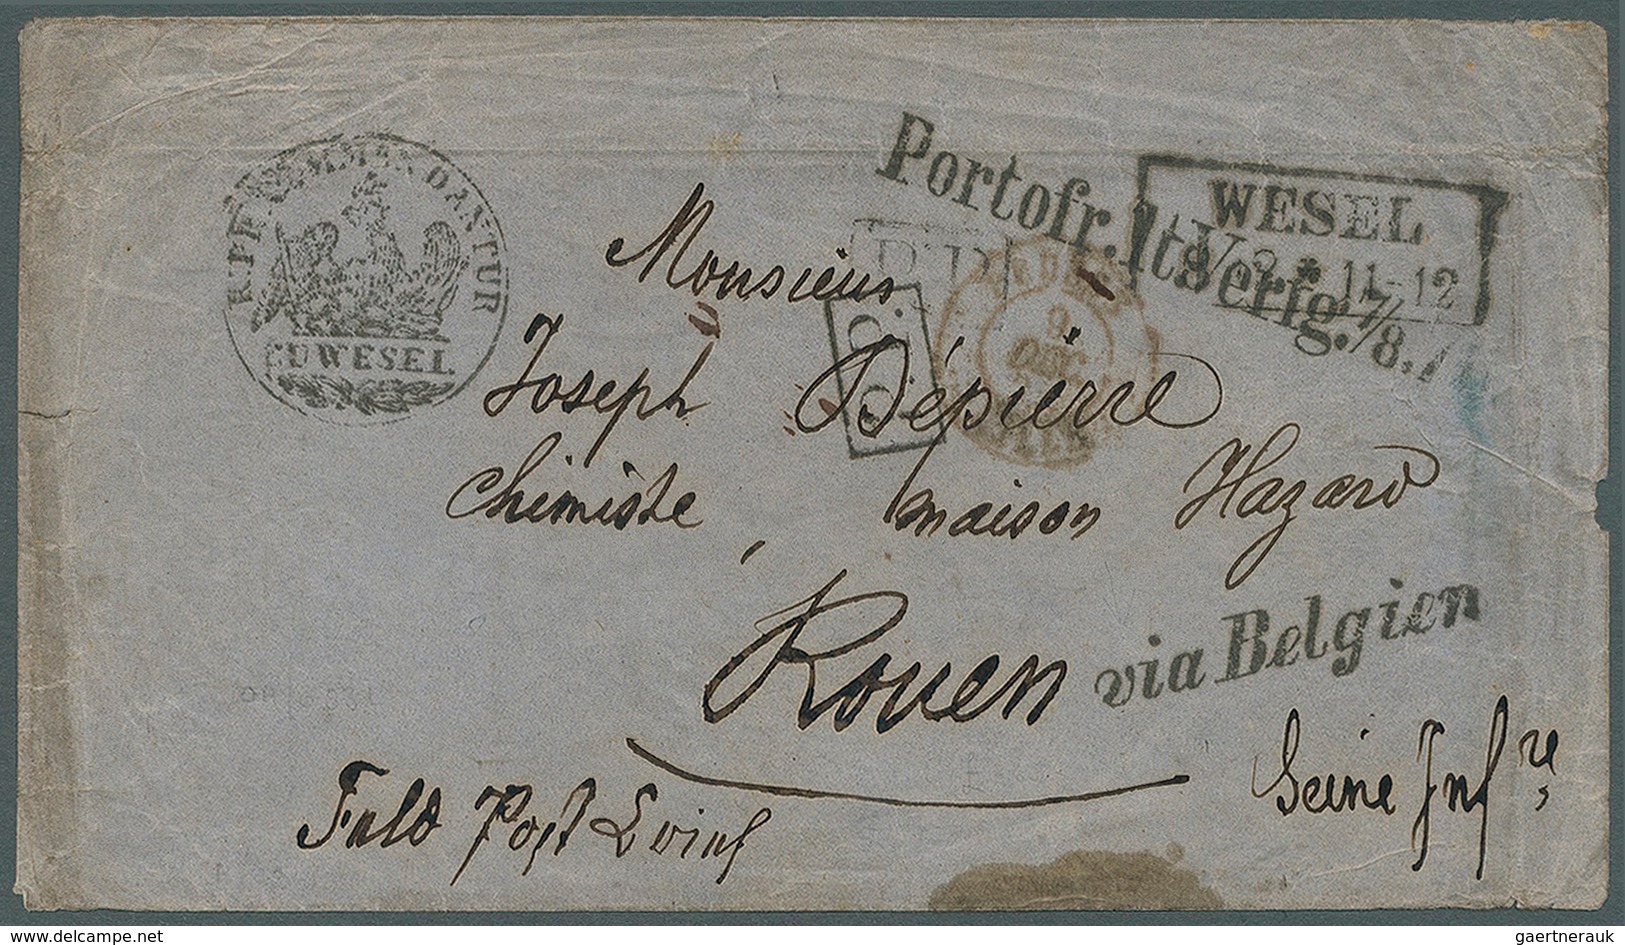 KPF KOMMENDANTUR
ZU WESEL
Portofr. lt. Verfg. 17/8.
WESEL
11-12
P.D.
P.D.
9
DEC
Monsieur
Joseph Dépierre
Chimiste, maison Hazard
Rouen
via Belgien
Seine Infre,
Feld Post Brief
delcampe.net
gaertnerauk